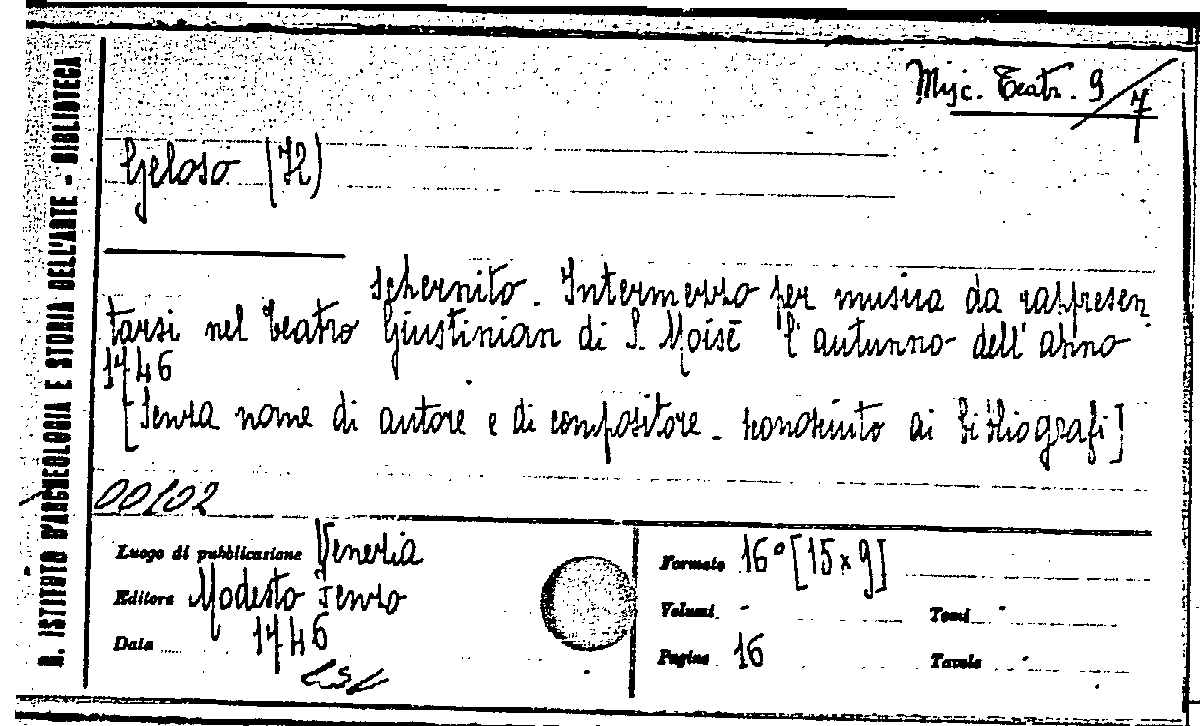 Misc. Teatr. 9/7
R. ISTITUTO D'ARCHEOLOGIA E STORIA DELL'ARTE - BIBLIOTECA
Geloso (Il)
schernito. Intermezzo per musica da rappresen
tarsi nel Teatro Giustinian di S. Moisè l'autunno dell'anno
1746
[Senza nome di autore e di compositore. ai bibliografi]
00102
Luogo di pubblicazione Venezia
Editore Modesto Fenzo
Data 1746
Formato 16° [15 x 9]
Volumi - Tomi -
Pagine 16 Tavole -